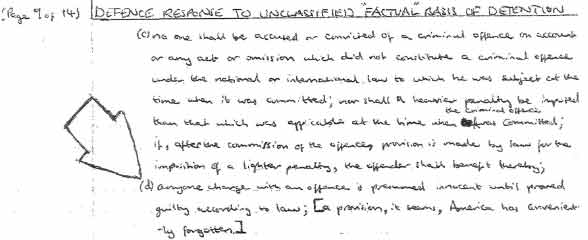 (Page 9 of 14) DEFENCE RESPONSE TO UNCLASSIFIED "FACTUAL" BASIS OF DETENTION
(c) no one shall be accused or convicted of a criminal offence on account
or any act or omission which did not constitute a criminal offence
under the national or international law to which he was subject at the
time when it was committed; nor shall a heavier penalty be imposed
than that which was applicable at the time when the criminal offence was committed;
if, after the commission of the offence, provision is made by law for the
imposition of a lighter penalty, the offender shall benefit thereby;
(d) anyone charge with an offence is presumed innocent until proved
guilty according to law; [a provision, it seems, America has convenient
-ly forgotten.]